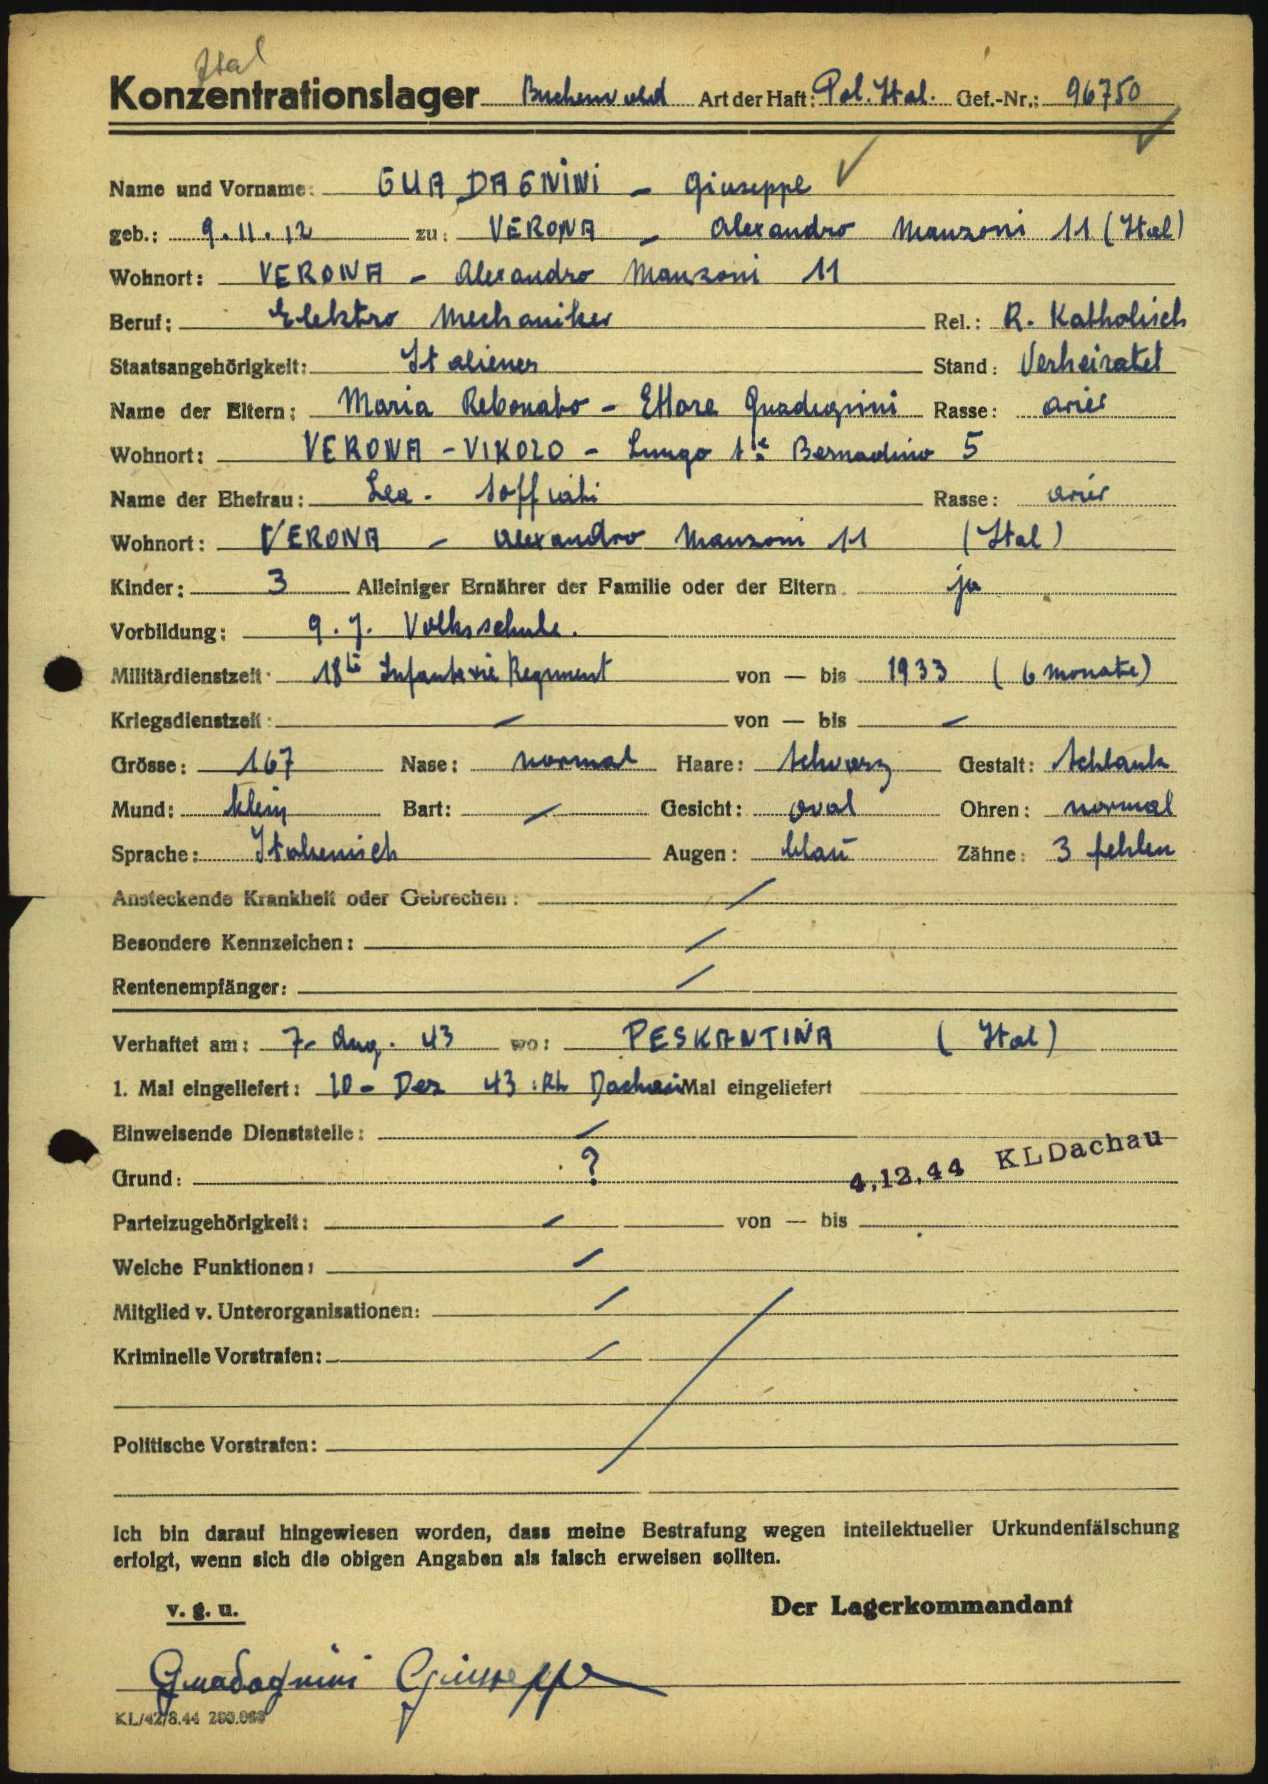 Ital
Konzentrationslager Buchenwald Art der Haft: Pol. Ital. Gef.-Nr.: 96750
Name und Vorname: GUADAGNINI - Giuseppe
geb.: 9.11.12 zu: VERONA - Alexandro Manzoni 11 (Ital)
Wohnort: VERONA - Alexandro Manzoni 11
Beruf: Elektro Mechaniker Rel.: R. Katholisch
Staatsangehörigkeit: Italiener Stand: Verheiratet
Name der Eltern: Maria Rebonato - Ettore Guadagnini Rasse: arier
Wohnort: VERONA - VIKOLO - Lungo Bernadino 5
Name der Ehefrau: Lea - Rasse: arier
Wohnort: VERONA - Alexandro Manzoni 11 (Ital)
Kinder: 3 Alleiniger Ernährer der Familie oder der Eltern ja
Vorbildung: 9. J. Volksschule.
Militärdienstzeit: 18te Infanterie Regiment von — bis 1933 (6 Monate)
Kriegsdienstzeit: — von — bis —
Grösse: 167 Nase: normal Haare: schwarz Gestalt: schlank
Mund: klein Bart: — Gesicht: oval Ohren: normal
Sprache: Italienisch Augen: blau Zähne: 3 fehlen
Ansteckende Krankheit oder Gebrechen: /
Besondere Kennzeichen: /
Rentenempfänger: /
Verhaftet am: 7- Aug. 43 wo: PESKANTINA (Ital)
1. Mal eingeliefert: 10- Dez 43 : KL Dachau Mal eingeliefert
Einweisende Dienststelle: /
Grund: ? 4.12.44 KL Dachau
Parteizugehörigkeit: / von — bis
Welche Funktionen: /
Mitglied v. Unterorganisationen: /
Kriminelle Vorstrafen: /
Politische Vorstrafen:
Ich bin darauf hingewiesen worden, dass meine Bestrafung wegen intellektueller Urkundenfälschung
erfolgt, wenn sich die obigen Angaben als falsch erweisen sollten.
v. g. u. Der Lagerkommandant
Guadagnini Giuseppe
KL/42/8.44 200.000